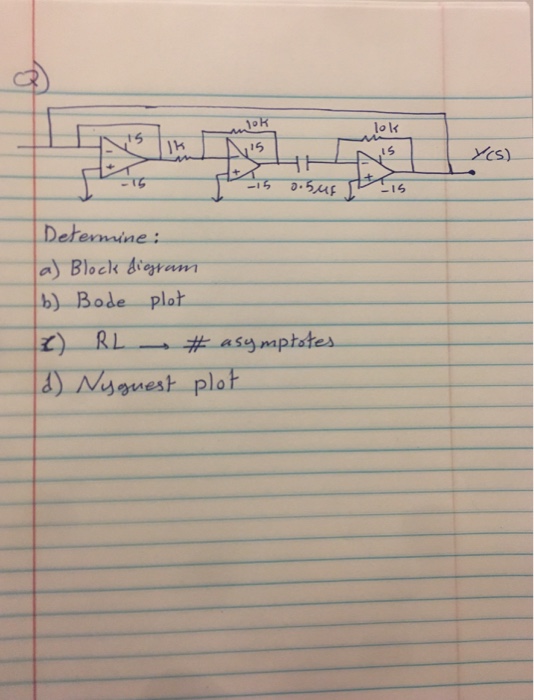 Q)
10K
10k
15
1K
15
15
Y(S)
-15
-15
0.5µf
-15
Determine:
a) Block digram
b) Bode plot
c) RL → # asymptotes
d) Nyguest plot